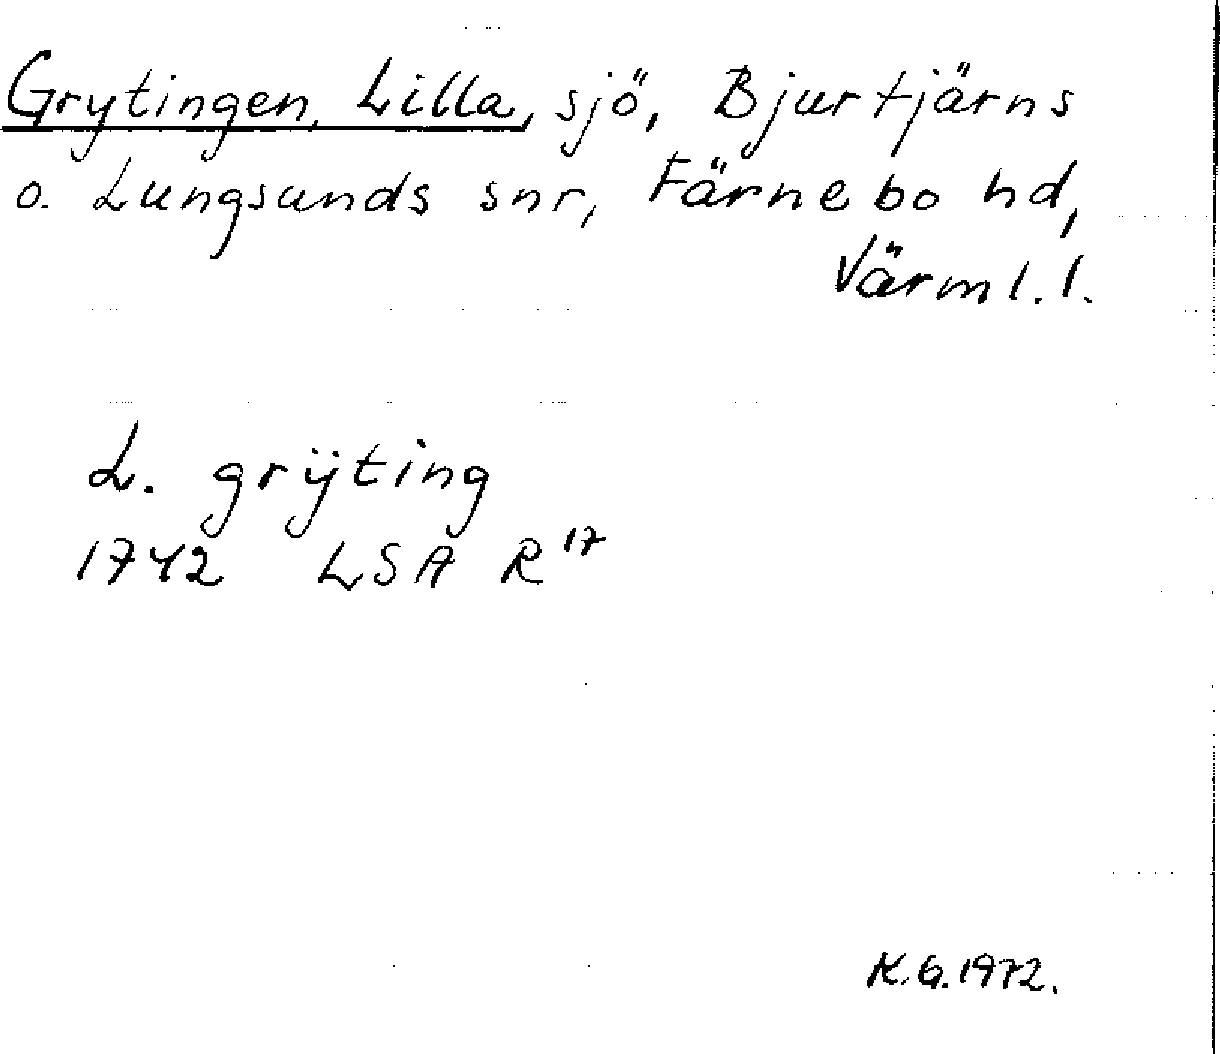 Grytingen, Lilla, sjö, Bjurtjärns
o. Lungsunds snr, Färnebo hd,
Värml. l.
L. grÿting
1742 LSA R 17
K.G. 1972.